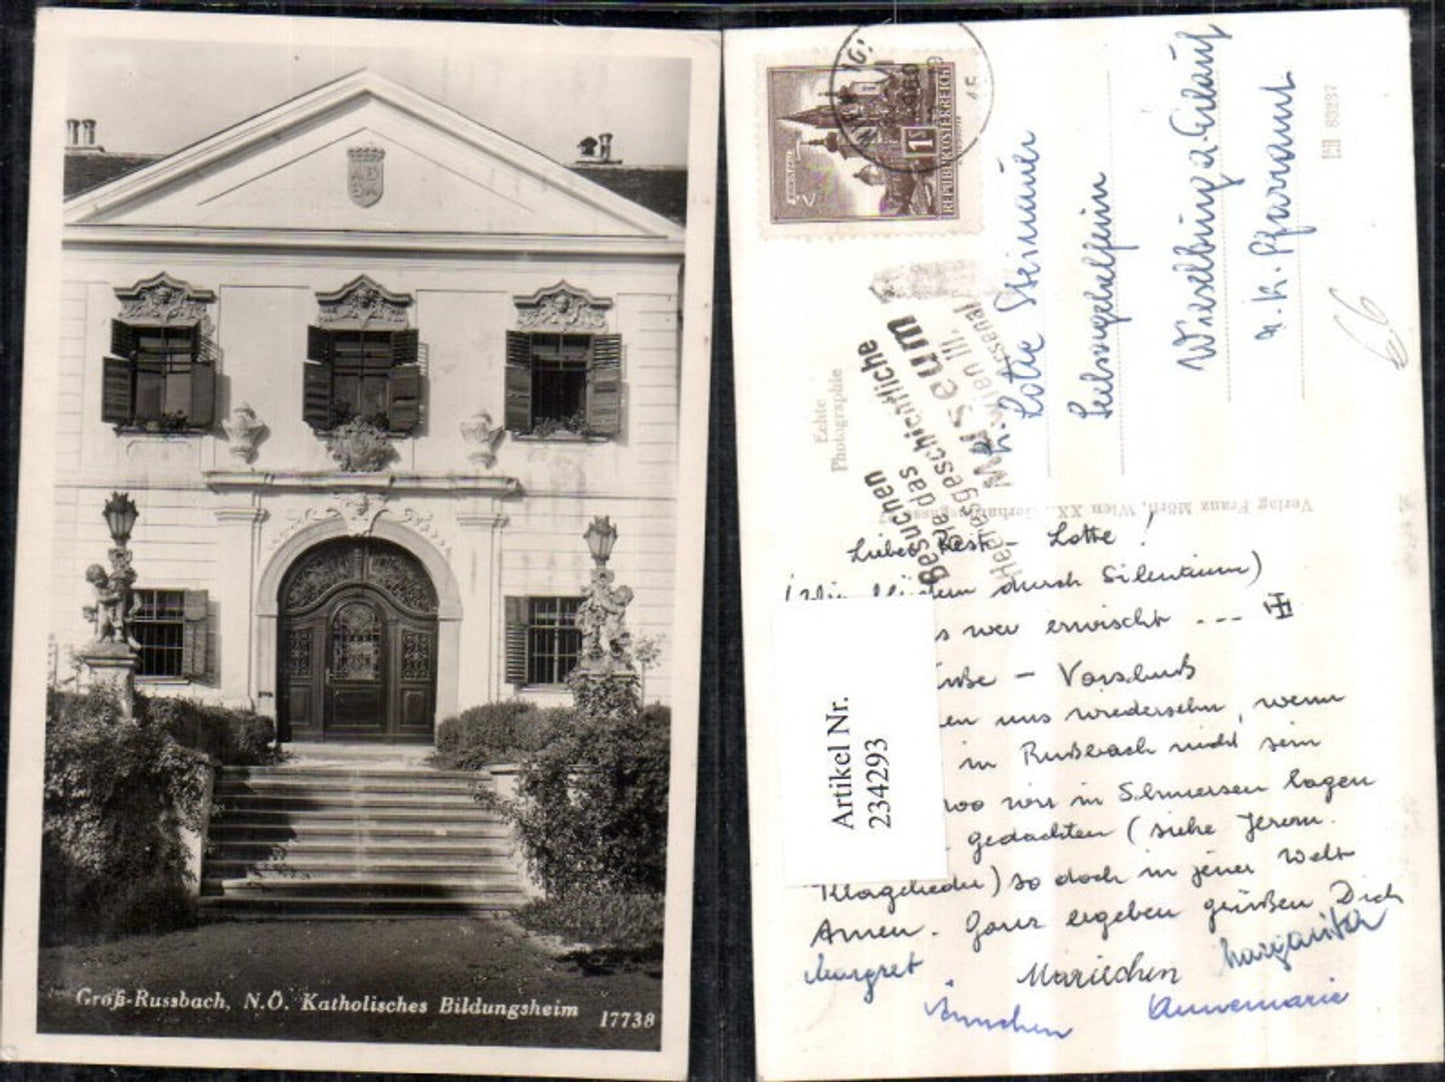 Groß-Russbach, N.Ö. Katholisches Bildungsheim
17738
1S
REPUBLIK OSTERREICH
Besuchen
Sie das
Heeresgeschichtliche
Museum
Wien III.
Arsenal
Echte
Photographie
Verlag Franz Mörtl, Wien XX., Gerhardusgasse
83237
Lotte Steinauer
Seelsorgehelferin
Wieselburg a. Erlauf
r. k. Pfarramt
66
Artikel Nr.
234293
Liebe Rest - Lotte !
durch Silentium)
wer erwischt ---
- Vorschuß
uns wiedersehn, wenn
in Rußbach nicht sein
wo wir in Schmerzen lagen
gedachten (siehe Jerem.
Klagelieder) so doch in jener Welt
Amen. Ganz ergeben grüßen Dich
Margret Mariechen Margarita
Ännchen Annemarie